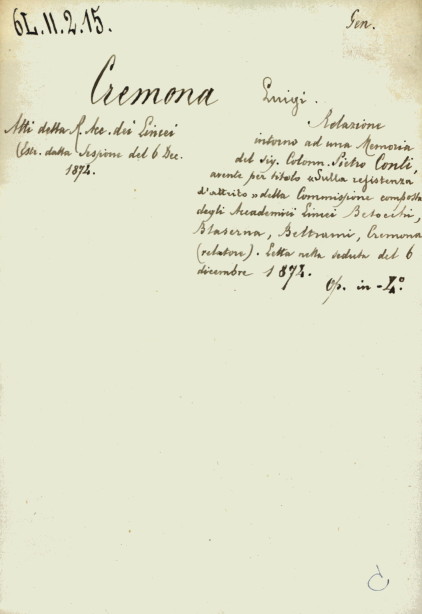 6L.11.2.15.
Gen.
Cremona Luigi.
Atti della R. Acc. dei Lincei
(Estr. dalla Sessione del 6 Dec.
1874.
Relazione
intorno ad una Memoria
del sig. Colonn. Pietro Conti,
avente per titolo «Sulla resistenza
d'attrito» della Commissione composta
degli Accademici Lincei Betocchi,
Blaserna, Beltrami, Cremona
(relatore). Letta nella seduta del 6
dicembre 1874.
Op. in-4.º